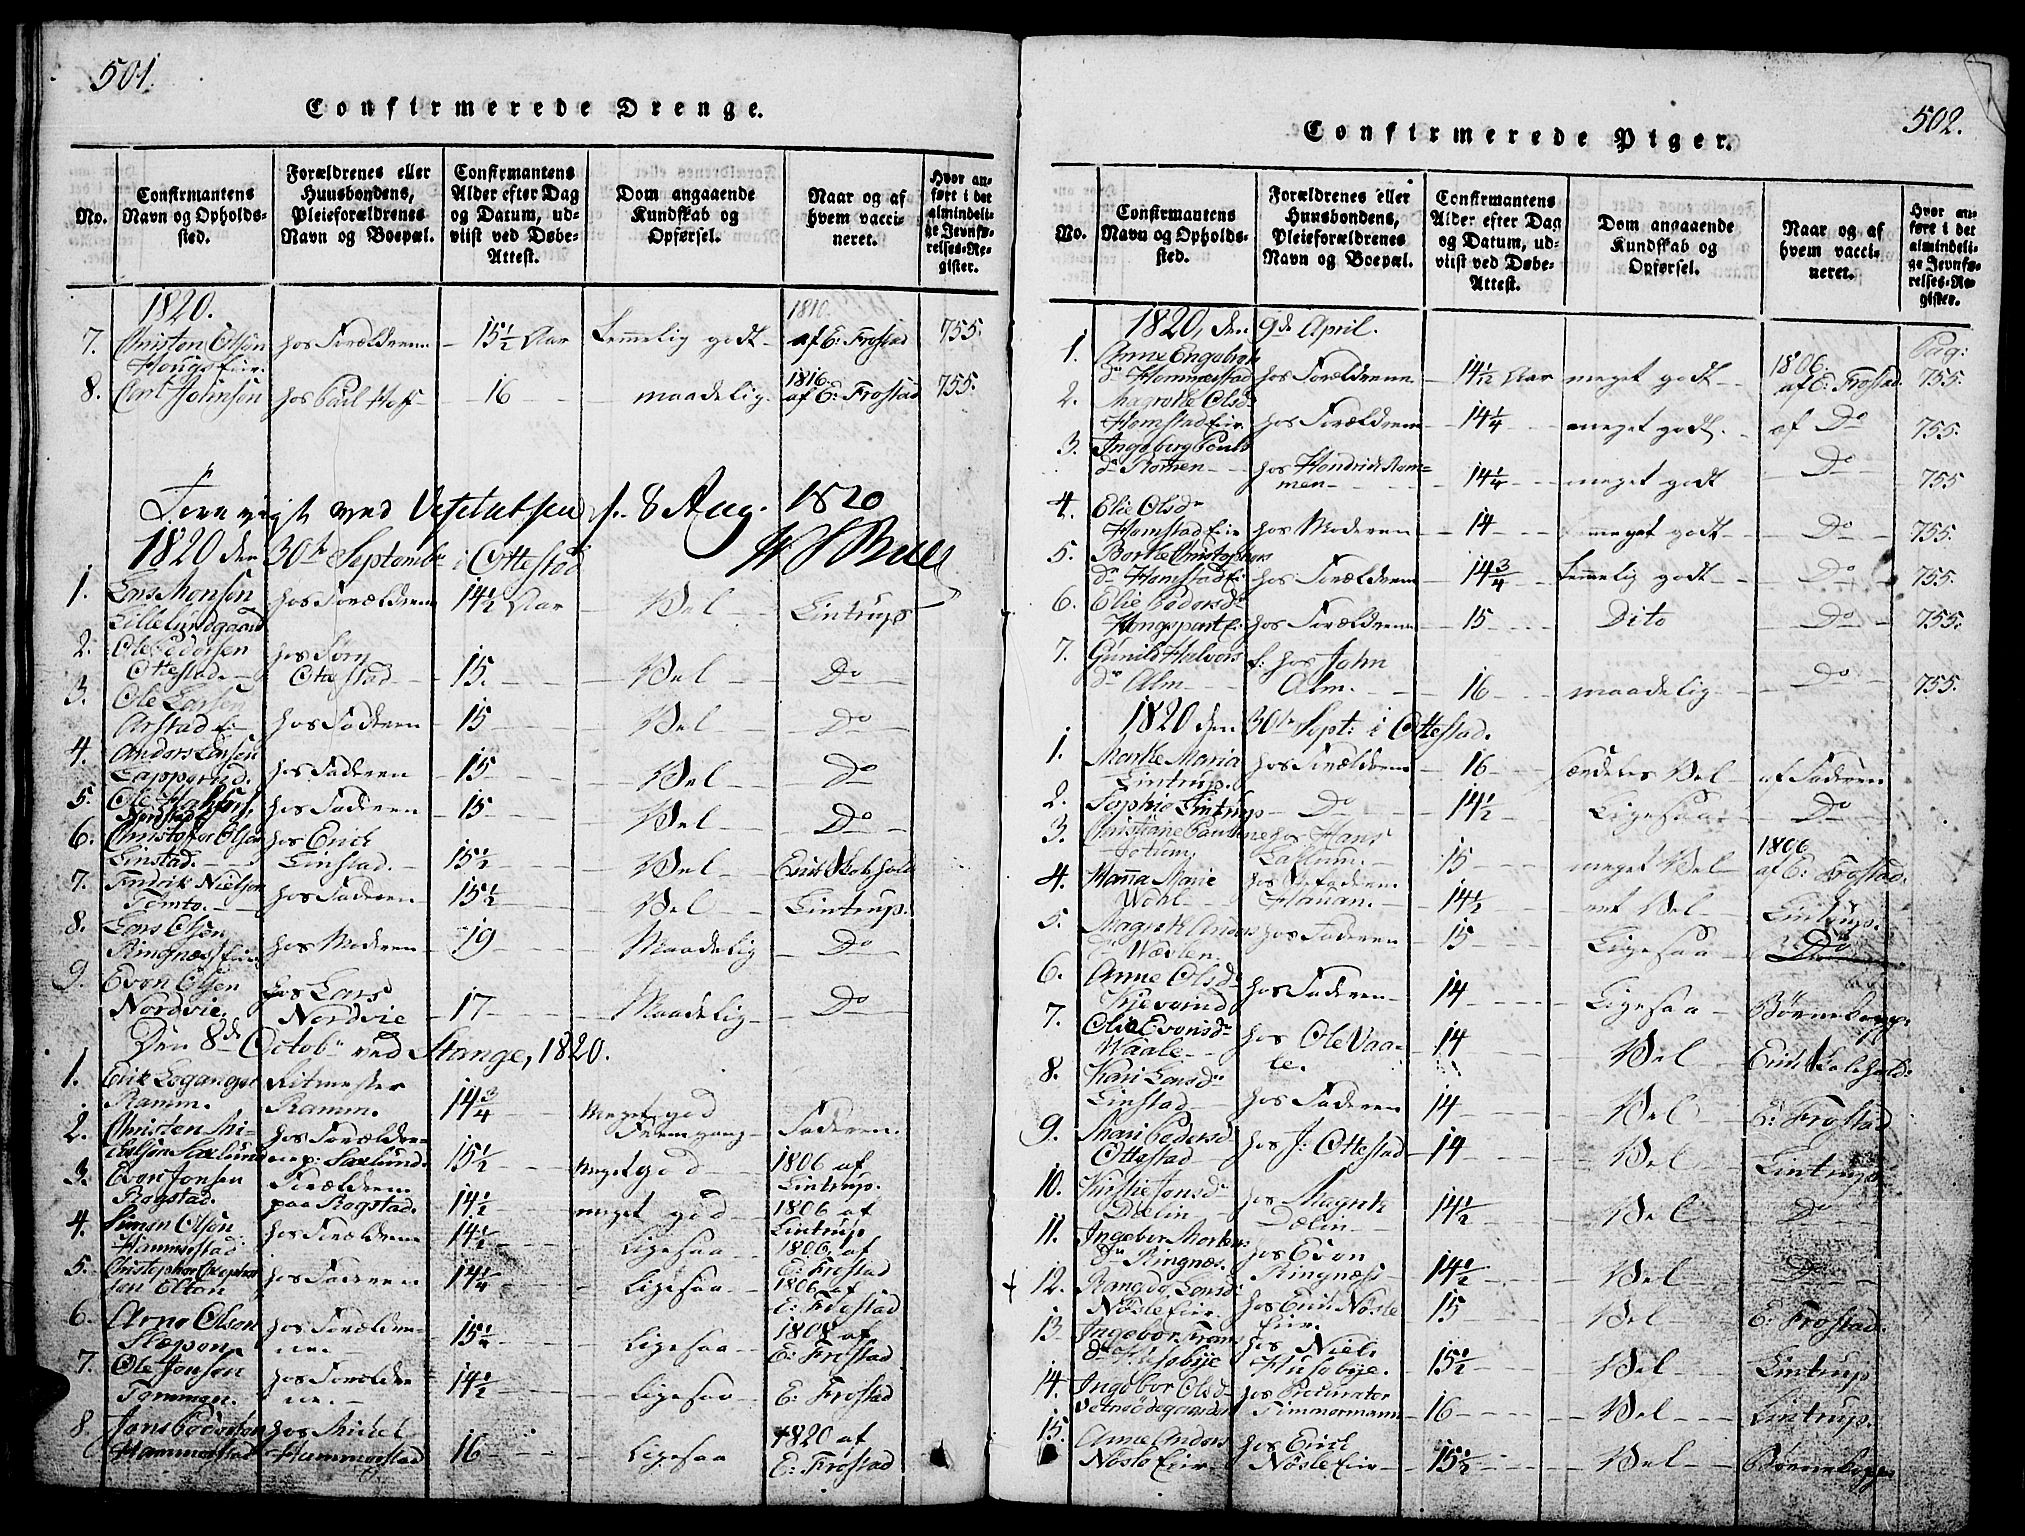 501.
Confirmerede Drenge.
No.
Confirmantens Navn og Opholdssted.
Forældrenes eller Huusbondens, Pleieforældrenes Navn og Boepæl.
Confirmantens Alder efter Dag og Datum, udviist ved Døbe-Attest.
Dom angaaende Kundskab og Opførsel.
Naar og af hvem vaccineret.
Hvor anført i det almindelige Jevnførelses-Register.
1820.
7. Christen Olsen hos Forældrene 15½ Aar temmelig godt 1810. af E: Frostad 755.
Hougs Eier.
8. Carl Johnsen hos Paul Hoff 16 maadelig 1816 af E: Frostad 755.
Forevigt ved Visitatsen d. 8 Aug. 1820
1820 den 30te Septembr i Ottestad
1. Lars Monsen hos Forældrene 14½ Aar Vel Lintrup
Lille Lundgaard
2. Ole Pedersen hos Sørn
Ottestad Ottestad 15. Vel Do
3. Ole Larsen
Arstad Ei: hos Faderen 15 Vel Do
4. Anders Larsen
Lappgrud. hos Faderen 15 Vel Do
5. Ole Hakens: hos Faderen 15 Vel Do
6. Christoffer Olsen hos Erich
Linstad. Linstad. 15½ Vel
7. Fredrik Nielsen hos Faderen 15½ Vel Lintrup.
Tomto.
8. Lars Olsen
Ringnæs Eier hos Moderen 19 Maadelig Do
9. Even Olsen hos Lars
Nordvie. Nordvie 17 Maadelig Do
Den 8de Octobr ved Stange, 1820.
1. Erik Leganger Ritmester
Ramm. Ramm. 14¾ Meget god Fremgang Faderen.
2. Christen Mi- hos Forældre-
elsen Saxlund ne p: Saxlund. 15½ meget god 1806 af Lintrup.
3. Even Jensen Forældrene
Rogstad. paa Rogstad. 14½ meget god 1806 af Lintrup
4. Simen Olsen hos Forældrene 14½ Ligesaa 1806. af E: Frostad
Hammerstad
5. Christopher Christopher hos Faderen 14¼ Ligesaa 1806 af E: Frostad
sen Elton
6. Arne Olsen hos Forældre-
Skepen ne. 15¼ Ligesaa 1808 af E: Frostad
7. Ole Jensen hos Forældre
Tommen. ne. 14½ Ligesaa E: Frostad
8. Jens Pedersen hos Michel
Hammerstad Hammerstad 16 Ligesaa 1820 af E: Frostad
502.
Confirmerede Piger.
No.
Confirmantens Navn og Opholdssted.
Forældrenes eller Huusbondens, Pleieforældrenes Navn og Boepæl.
Confirmantens Alder efter Dag og Datum, udviist ved Døbe-Attest.
Dom angaaende Kundskab og Opførsel.
Naar og af hvem vaccineret.
Hvor anføre i det almindelige Jevnførelses-Register.
1820, den 9de April. Pag:
1. Anne Engebrets
dr Hommerstad hos Forældrene 14½ Aar meget godt 1806 af E: Frostad 755.
2. Magrethe Olsd:
Homstad Eier hos Forældrene 14¼ meget godt af Do 755.
3. Ingeborg Pouls
dr Romen hos Hendrick Rommen 14¼ meget godt Do 755
4. Elie Olsdr
Homstad Eier hos Moderen 14 meget godt Do 755.
5. Berthe Christophers
dr Homstad Ei: hos Forældrene 14¾ temmelig godt Do 755.
6. Elie Pedersdr
hos Forældrene 15 Dito Do 755.
7. Gunild Halvors f: hos John
dr Alm Alm. 16 maadelig Do 755.
1820 den 30te Sept: i Ottestad.
1. Marthe Maria hos Forældrene 16 særdeles Vel af Faderen
Lintrup.
2. Sophie Lintrup Do 14½ Ligesaa Do
3. Christiane Pauline hos Hans
Jotum Lallum. 15 meget Vel 1806 af E: Frostad.
4. Hanna Marie
Wohl 14½ ret Vel Lintrup.
5. Magreth Anders hos Faderen 15 Ligesaa Do
dr Wæslen.
6. Anne Olsdr
hos Faderen 14 Ligesaa
7. Olia Evensdr
Waale hos Ole Vaale. 14 Vel
8. Kari Larsdr
Linstad hos Faderen 14 Vel E: Frostad
9. Mari Pedersd
Ottestad hos J: Ottestad 14 Vel Lintrup
10. Kirstie Jensdr hos Magreth
Dælin Dælin 14½ Vel Do
11. Ingebor Mortens hos Even
dr Ringnæs. Ringnæss 14½ Vel Do
12. Rangdi Larsd: hos Erich Nøsle
Nøsle Eier. Eier. 15 Vel E: Frostad.
13. Ingebor Frans hos Niels
dr Husebye Husebye. 15½ Vel Lintrup
14. Ingebor Olsd hos Procurator
Timmermann 16 Vel Lintrup.
15. Anne Anders hos Erich
Nøslo Eier Nøsle Eier 15½ Vel